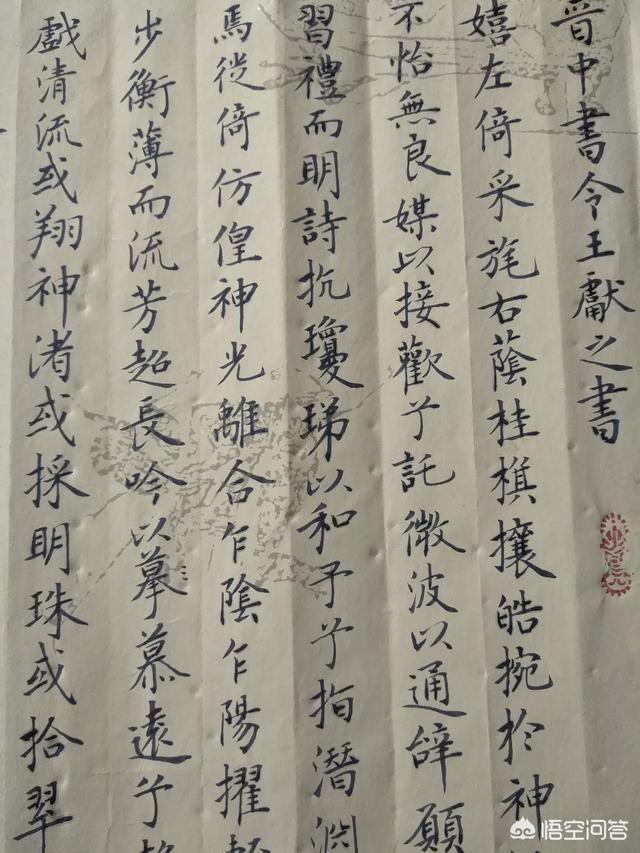 晋中書令王獻之書
嬉左倚采旄右蔭桂旗攘皓捥於神
不怡無良媒以接歡兮託微波以通辭願
習禮而明詩抗瓊珶以和予兮指潛淵
焉徙倚仿偟神光離合乍陰乍陽擢
步衡薄而流芳超長吟以摹慕遠兮
戲清流或翔神渚或採明珠或拾翠
悟空问答